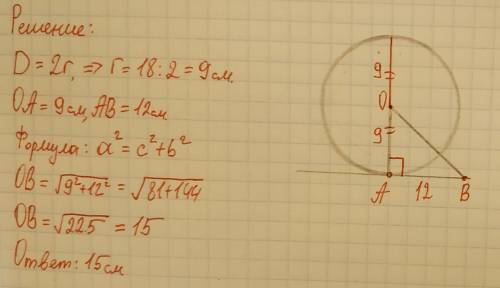 Решение:
D = 2r, => r = 18 : 2 = 9 см.
OA = 9 см, AB = 12 см
Формула: a² = c² + b²
OB = √9² + 12² = √81 + 144
OB = √225 = 15
Ответ: 15 см
9
O
9
A 12 B